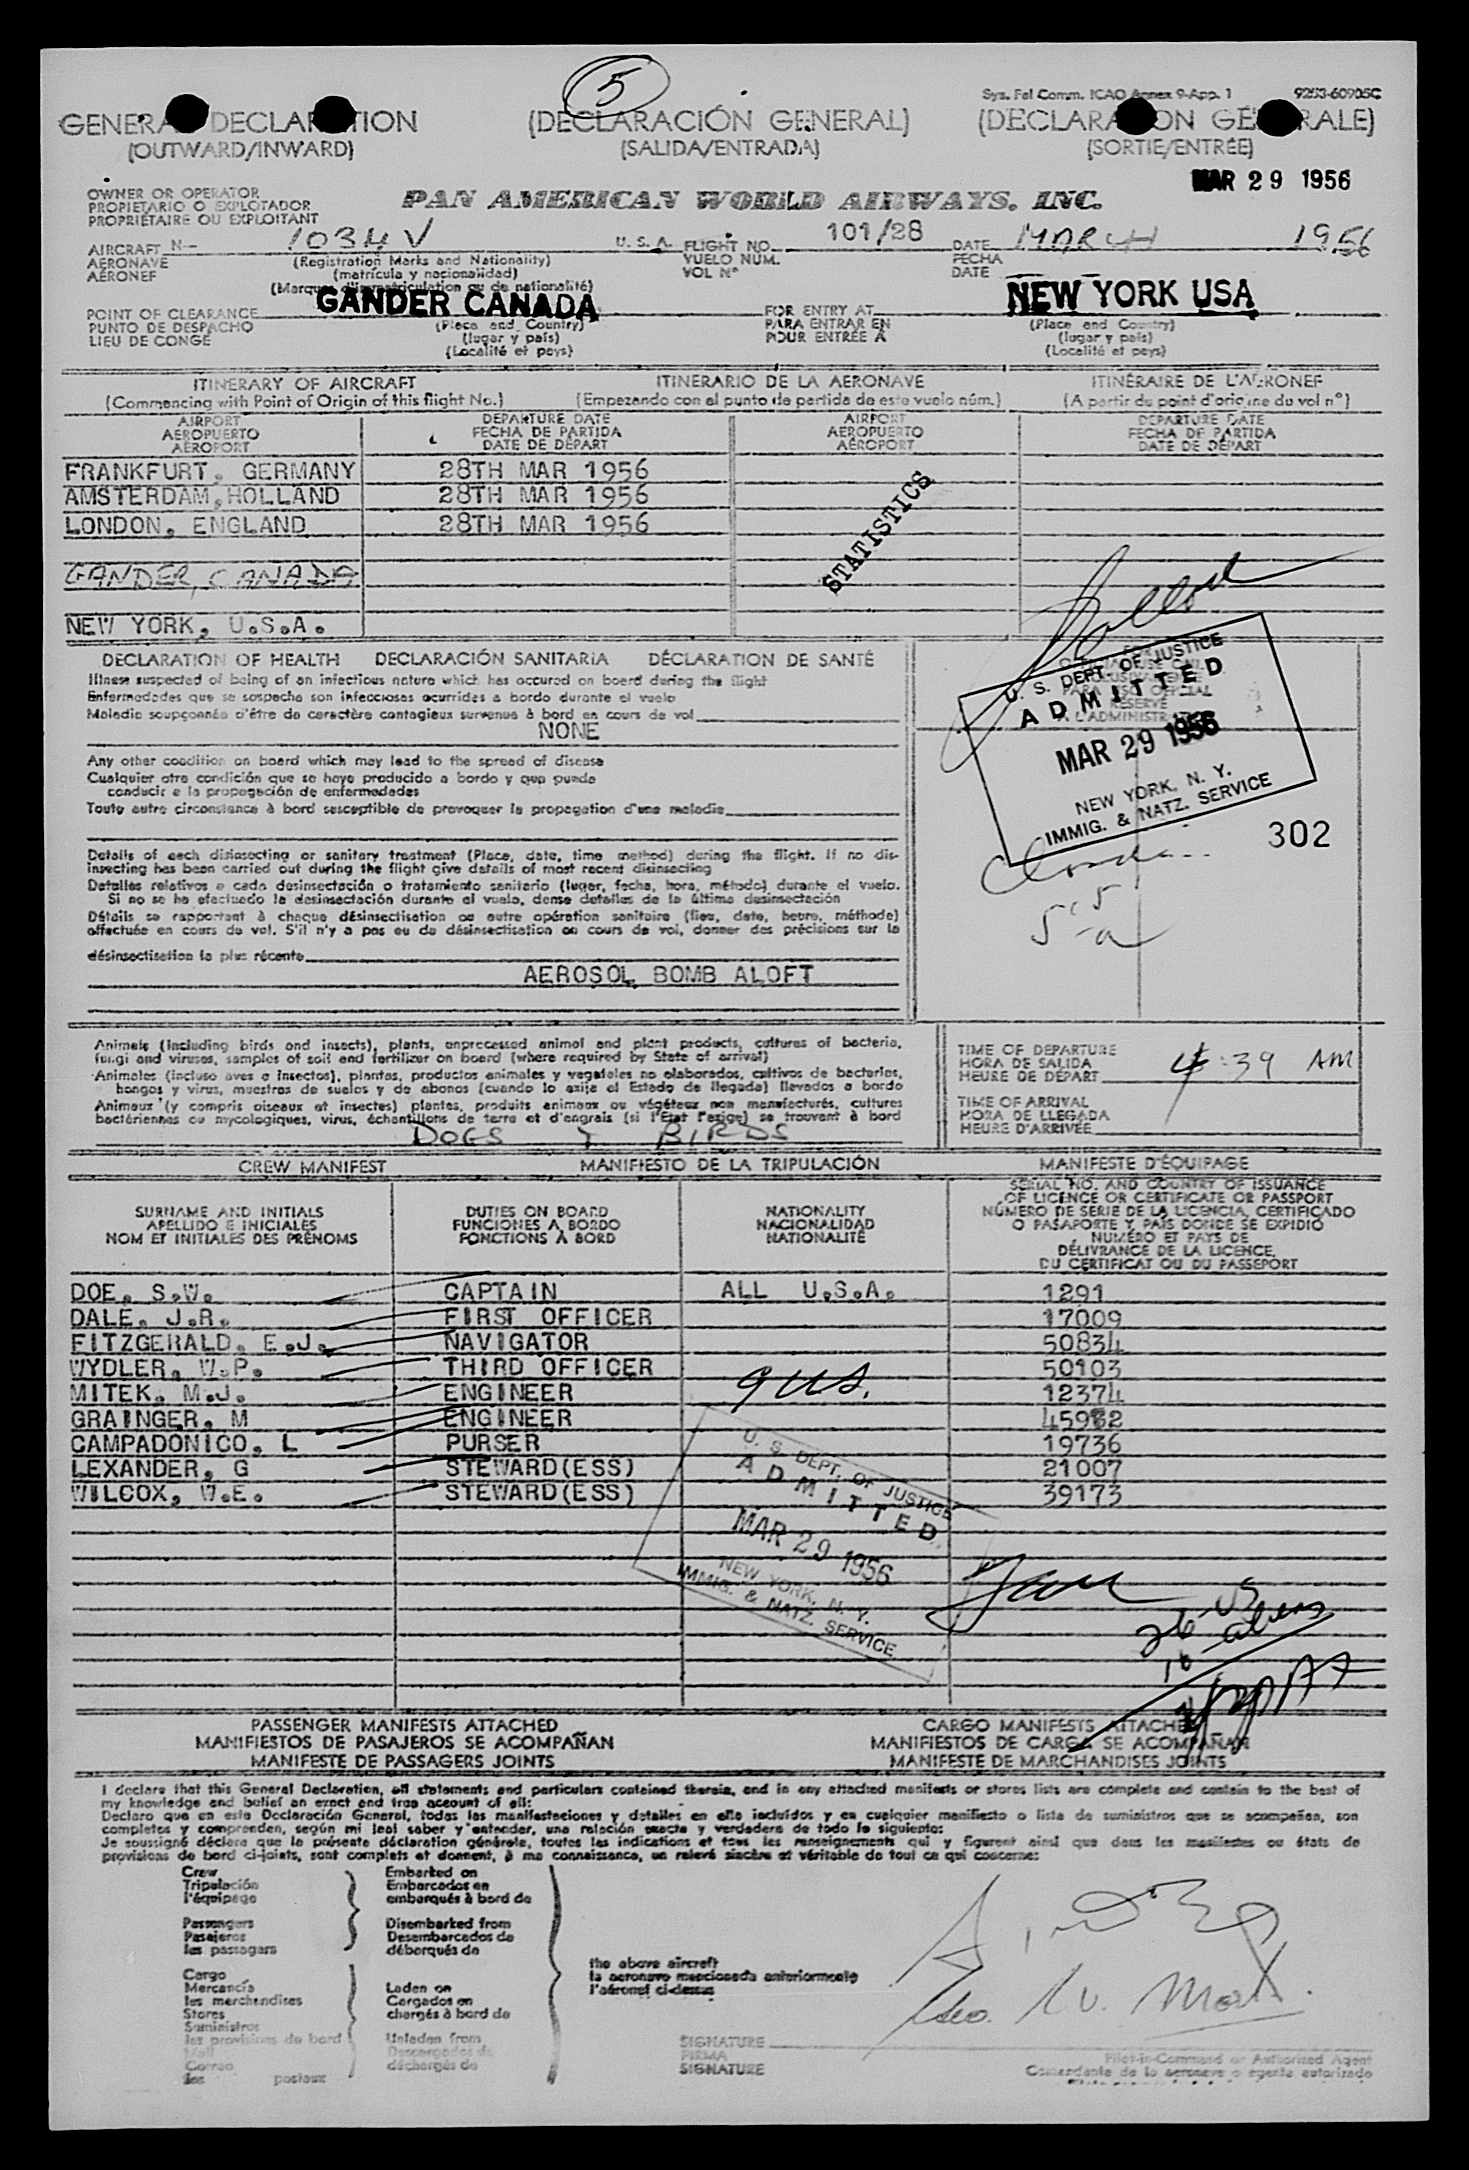 5
Sys. Fel Comm. ICAO Annex 9-App. 1 9253-60905C
GENERAL DECLARATION (DECLARACIÓN GENERAL) (DÉCLARATION GÉNÉRALE)
(OUTWARD/INWARD) (SALIDA/ENTRADA) (SORTIE/ENTRÉE)
MAR 29 1956
OWNER OR OPERATOR
PROPIETARIO O EXPLOTADOR
PROPRIÉTAIRE OU EXPLOITANT
PAN AMERICAN WORLD AIRWAYS, INC.
AIRCRAFT N- 1034V U. S. A. FLIGHT NO. 101/28 DATE MARCH 1956
AERONAVE (Registration Marks and Nationality) VUELO NÚM. FECHA
AÉRONEF (matrícula y nacionalidad) VOL Nº DATE
(Marques d'immatriculation ou de nationalité)
POINT OF CLEARANCE GANDER CANADA FOR ENTRY AT NEW YORK USA
PUNTO DE DESPACHO (Place and Country) PARA ENTRAR EN (Place and Country)
LIEU DE CONGÉ (lugar y país) POUR ENTRÉE À (lugar y país)
(Localité et pays) (Localité et pays)
ITINERARY OF AIRCRAFT ITINERARIO DE LA AERONAVE ITINÉRAIRE DE L'AÉRONEF
(Commencing with Point of Origin of this flight No.) (Empezando con el punto de partida de este vuelo núm.) (A partir du point d'origine du vol nº)
AIRPORT DEPARTURE DATE AIRPORT DEPARTURE DATE
AEROPUERTO FECHA DE PARTIDA AEROPUERTO FECHA DE PARTIDA
AÉROPORT DATE DE DÉPART AÉROPORT DATE DE DÉPART
FRANKFURT, GERMANY 28TH MAR 1956
AMSTERDAM, HOLLAND 28TH MAR 1956
LONDON, ENGLAND 28TH MAR 1956
STATISTICS
GANDER, CANADA
NEW YORK, U.S.A.
DECLARATION OF HEALTH DECLARACIÓN SANITARIA DÉCLARATION DE SANTÉ
Illness suspected of being of an infectious nature which has occured on board during the flight
Enfermedades que se sospecha son infecciosas ocurridas a bordo durante el vuelo
Maladie soupçonnée d'être de caractère contagieux survenue à bord en cours de vol
NONE
Any other condition on board which may lead to the spread of disease
Cualquier otra condición que se haya producido a bordo y que pueda
conducir a la propagación de enfermedades
Toute autre circonstance à bord susceptible de provoquer la propagation d'une maladie
U. S. DEPT. OF JUSTICE
ADMITTED
MAR 29 1956
NEW YORK, N. Y.
IMMIG. & NATZ. SERVICE
302
Details of each disinsecting or sanitary treatment (Place, date, time method) during the flight. If no dis-
insecting has been carried out during the flight give details of most recent disinsecting
Detalles relativos a cada desinsectación o tratamiento sanitario (lugar, fecha, hora, método) durante el vuelo.
Si no se ha efectuado la desinsectación durante el vuelo, dense detalles de la última desinsectación
Détails se rapportant à chaque désinsectisation ou autre opération sanitaire (lieu, date, heure, méthode)
effectuée en cours de vol. S'il n'y a pas eu de désinsectisation en cours de vol, donner des précisions sur la
désinsectisation la plus récente
AEROSOL BOMB ALOFT
Animals (including birds and insects), plants, unprocessed animal and plant products, cultures of bacteria,
fungi and viruses, samples of soil and fertilizer on board (where required by State of arrival)
Animales (incluso aves e insectos), plantas, productos animales y vegetales no elaborados, cultivos de bacterias,
hongos y virus, muestras de suelos y de abonos (cuando lo exija el Estado de llegada) llevados a bordo
Animaux (y compris oiseaux et insectes) plantes, produits animaux ou végétaux non manufacturés, cultures
bactériennes ou mycologiques, virus, échantillons de terre et d'engrais (si l'Etat l'exige) se trouvant à bord
DOGS & BIRDS
TIME OF DEPARTURE
HORA DE SALIDA
HEURE DE DÉPART 4:39 AM
TIME OF ARRIVAL
HORA DE LLEGADA
HEURE D'ARRIVÉE
CREW MANIFEST MANIFIESTO DE LA TRIPULACIÓN MANIFESTE D'ÉQUIPAGE
SURNAME AND INITIALS DUTIES ON BOARD NATIONALITY
APELLIDO E INICIALES FUNCIONES A BORDO NACIONALIDAD
NOM ET INITIALES DES PRÉNOMS FONCTIONS À BORD NATIONALITÉ
SERIAL NO. AND COUNTRY OF ISSUANCE
OF LICENCE OR CERTIFICATE OR PASSPORT
NÚMERO DE SERIE DE LA LICENCIA, CERTIFICADO
O PASAPORTE Y PAÍS DONDE SE EXPIDIÓ
NUMÉRO ET PAYS DE
DÉLIVRANCE DE LA LICENCE,
DU CERTIFICAT OU DU PASSEPORT
DOE, S.W. CAPTAIN ALL U.S.A. 1291
DALE, J.R. FIRST OFFICER 17009
FITZGERALD, E.J. NAVIGATOR 50834
WYDLER, W.P. THIRD OFFICER 50103
MITEK, M.J. ENGINEER 12374
GRAINGER, M ENGINEER 45982
CAMPADONICO, L PURSER 19736
LEXANDER, G STEWARD(ESS) 21007
WILCOX, W.E. STEWARD(ESS) 39173
9 US.
U. S. DEPT. OF JUSTICE
ADMITTED
MAR 29 1956
NEW YORK, N. Y.
IMMIG. & NATZ. SERVICE
26 US
10 aliens
PASSENGER MANIFESTS ATTACHED CARGO MANIFESTS ATTACHED
MANIFIESTOS DE PASAJEROS SE ACOMPAÑAN MANIFIESTOS DE CARGA SE ACOMPAÑAN
MANIFESTE DE PASSAGERS JOINTS MANIFESTE DE MARCHANDISES JOINTS
I declare that this General Declaration, all statements and particulars contained therein, and in any attached manifests or stores lists are complete and contain to the best of
my knowledge and belief an exact and true account of all:
Declaro que en esta Declaración General, todas las manifestaciones y detalles en ella incluídos y en cualquier manifiesto o lista de suministros que se acompañen, son
completos y comprenden, según mi leal saber y entender, una relación exacta y verdadera de todo lo siguiente:
Je soussigné déclare que la présente déclaration générale, toutes les indications et tous les renseignements qui y figurent ainsi que dans les manifestes ou états de
provisions de bord ci-joints, sont complets et donnent, à ma connaissance, un relevé sincère et véritable de tout ce qui concerne:
Crew Embarked on
Tripulación Embarcados en
l'équipage embarqués à bord de
Passengers Disembarked from
Pasajeros Desembarcados de
les passagers débarqués de
the above aircraft
la aeronave mencionada anteriormente
l'aéronef ci-dessus
Cargo
Mercancía Laden on
les marchandises Cargados en
Stores chargés à bord de
Suministros
les provisions de bord Unladen from
Mail Descargados de
Correo déchargés de
les postaux
SIGNATURE
FIRMA
SIGNATURE
Pilot-in-Command or Authorized Agent
Comandante de la aeronave o agente autorizado